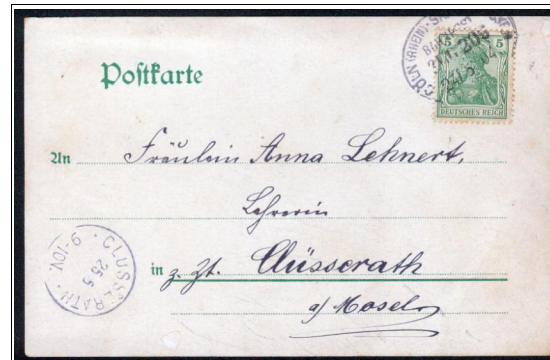 CÖLN (RHEIN)
5 5
DEUTSCHES REICH
Postkarte
An Fräulein Anna Lehnert,
Lehrerin
in z. Zt. Clüsserath
a/ Mosel
CLÜSSERATH
25 5
9-10V.